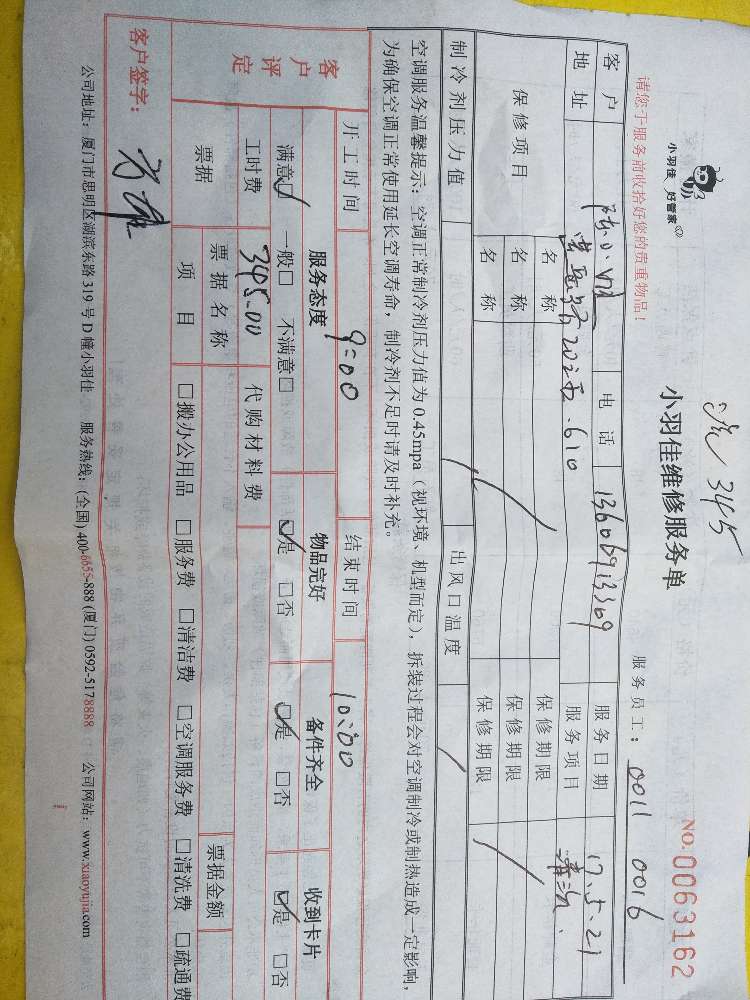 小羽佳 好管家
汇 345
小羽佳维修服务单
NO.0063162
请您于服务前收拾好您的贵重物品！
服务员工： 0011 0016
客户 电话 13606913309 服务日期 17.5.21
地址 610 服务项目 清洗
保修项目 名称 保修期限
名称 保修期限
名称 保修期限
制冷剂压力值 / 出风口温度 /
空调服务温馨提示：空调正常制冷剂压力值为0.45mpa（视环境、机型而定），拆装过程会对空调制冷或制热造成一定影响，
为确保空调正常使用延长空调寿命，制冷剂不足时请及时补充。
开工时间 9:00 结束时间 10:00
客户评定 服务态度 物品完好 备件齐全 收到卡片
满意☑ 一般□ 不满意□ ☑是 □否 ☑是 □否 ☑是 □否
工时费 345.00 代购材料费
票据 票据名称 票据金额
项目 □搬办公用品 □服务费 □清洁费 □空调服务费 □清洗费 □疏通费
客户签字：
公司地址：厦门市思明区湖滨东路319号D幢小羽佳 服务热线：(全国)400-6655-888 (厦门)0592-5178888 公司网站：www.xiaoyujia.com